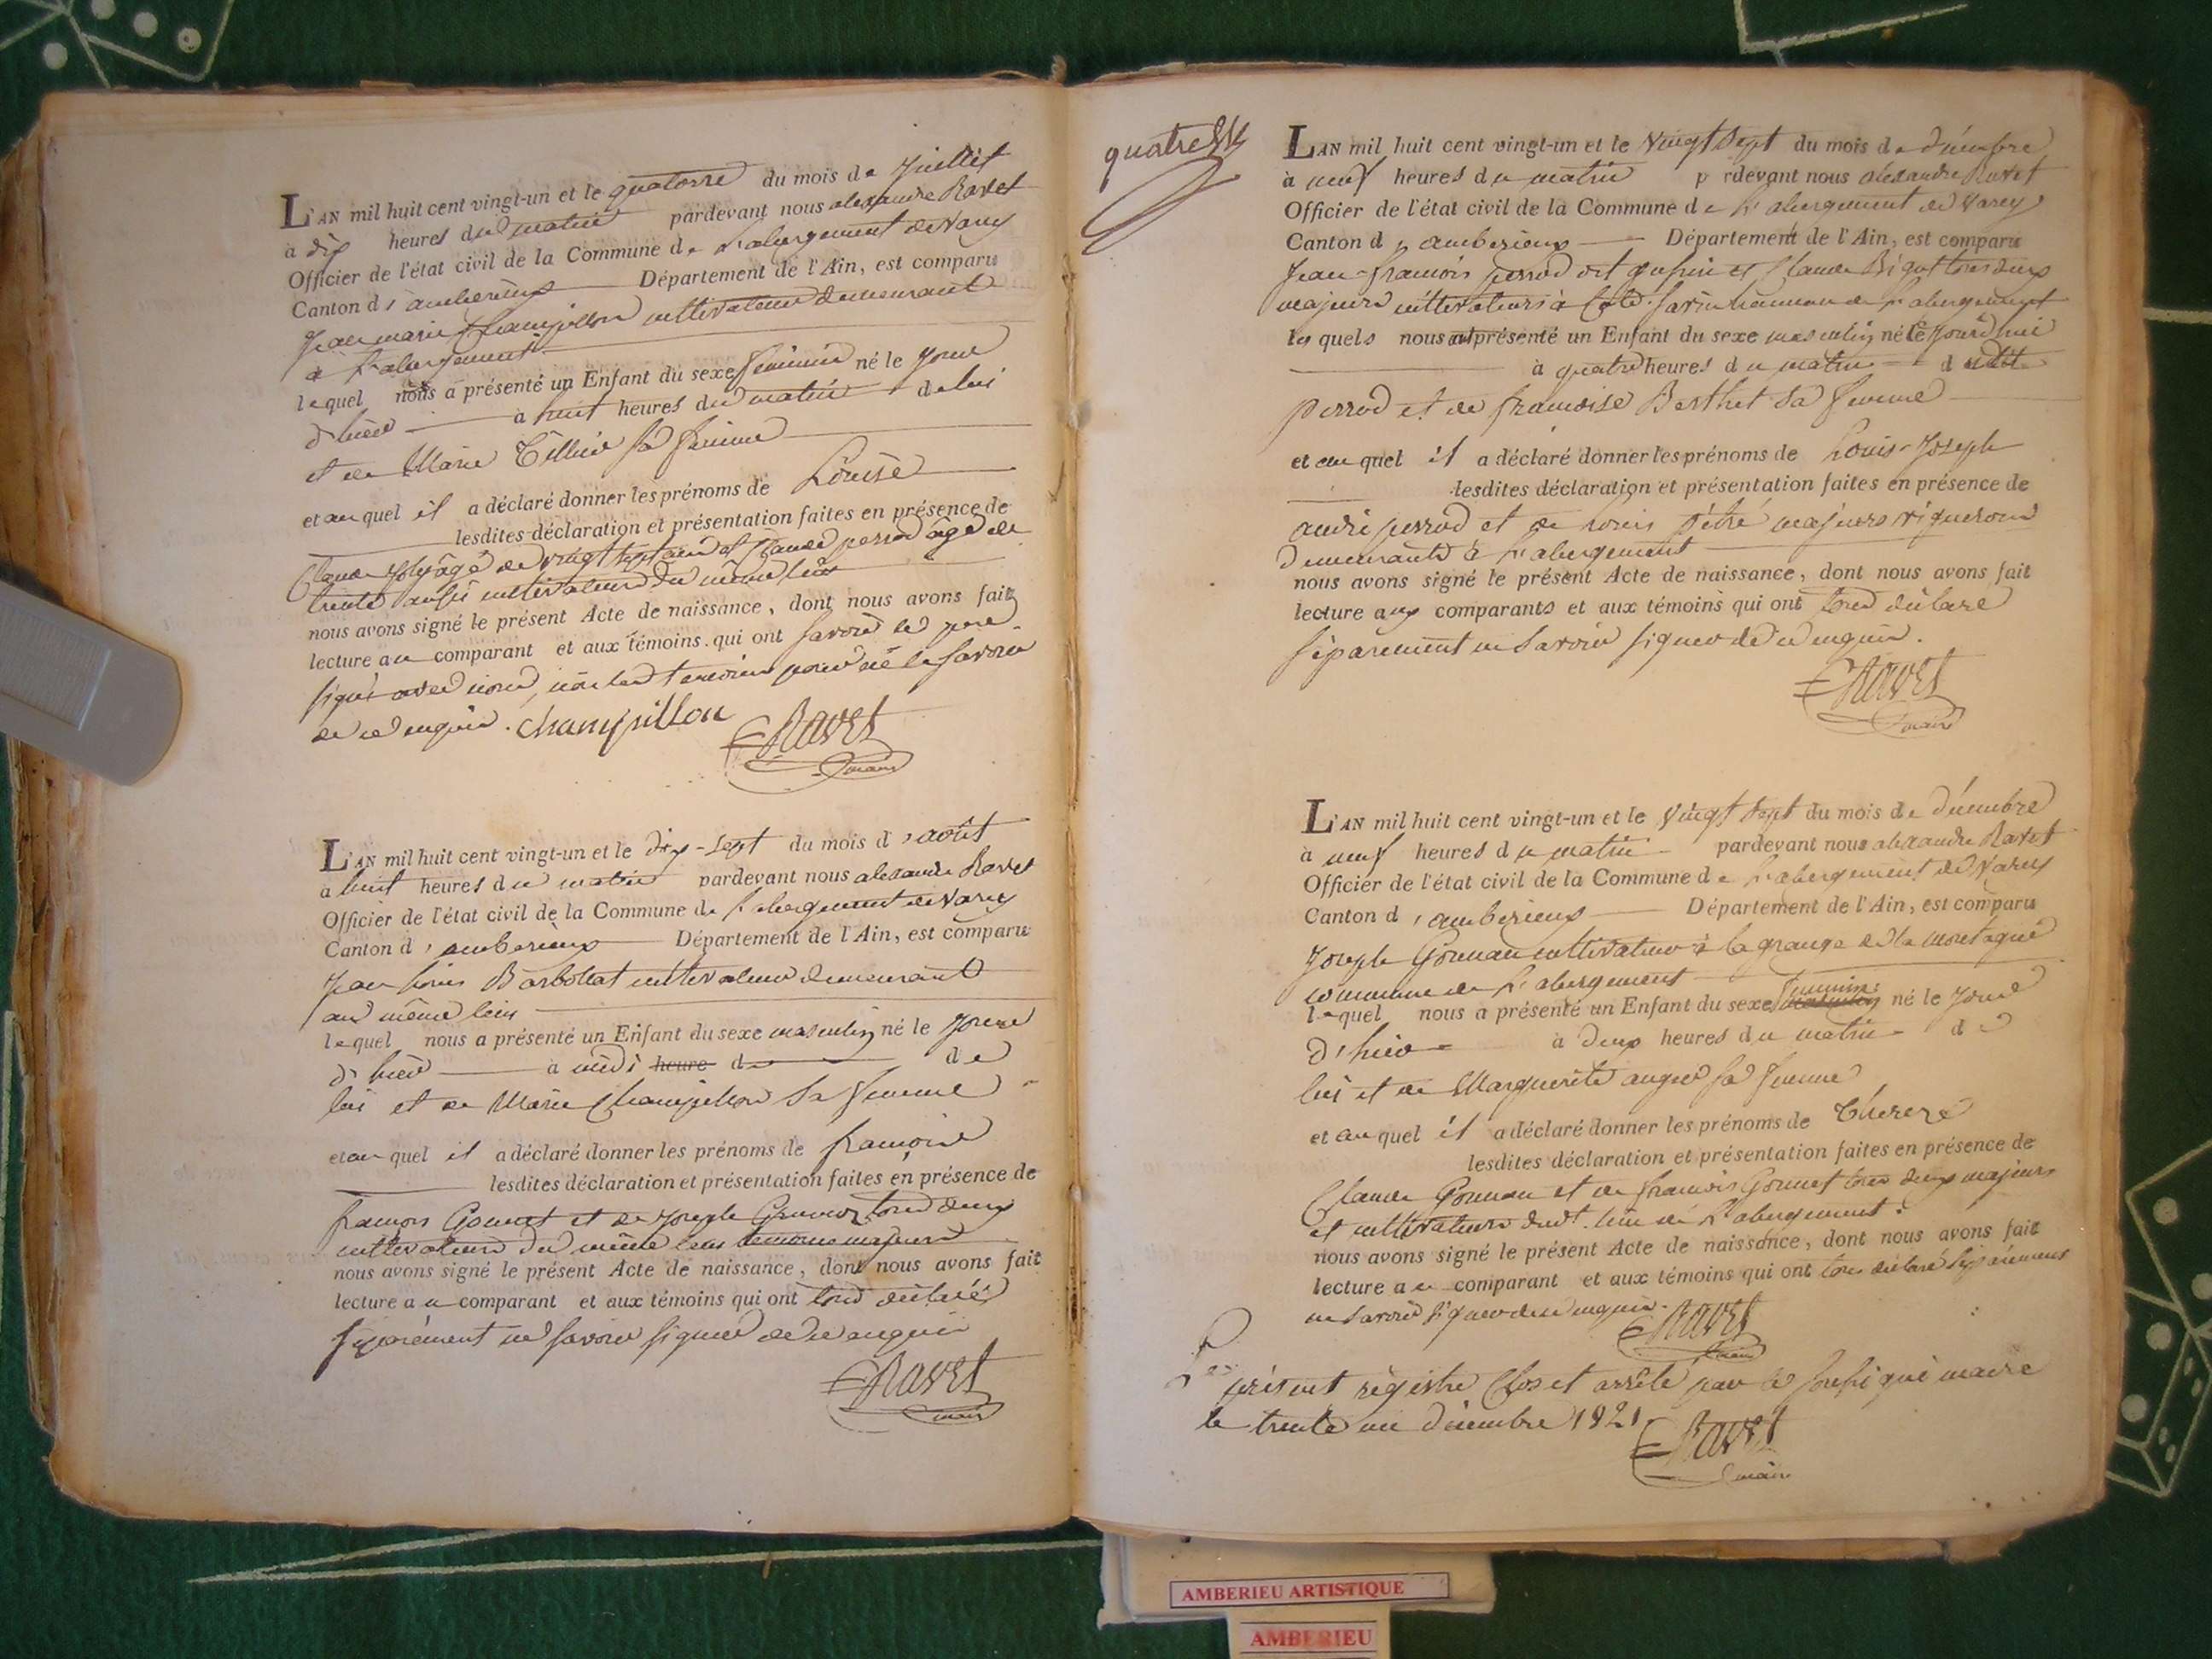 L'AN mil huit cent vingt-un et le quatorze du mois de Juillet
à dix heures du matin pardevant nous alexandre Ravet
Officier de l'état civil de la Commune de L'abergement de Varey
Canton d'amberieux Département de l'Ain, est comparu
Jean marie Champillon cultivateur demeurant
à L'abergement
lequel nous a présenté un Enfant du sexe feminin né le Jour
d'hier à huit heures du matin de lui
et de Marie Tillier sa femme
et au quel il a déclaré donner les prénoms de Louise
lesdites déclaration et présentation faites en présence de
Claude Joly âgé de vingt sept ans et Claude perrod âgé de
trente aussi cultivateurs du même lieu
nous avons signé le présent Acte de naissance, dont nous avons fait
lecture au comparant et aux témoins qui ont savoir le pere
signé avec nous, non les temoins pour ne le savoir
de ce enquis. Champillon
Ravet
maire
L'AN mil huit cent vingt-un et le dix-sept du mois d'août
à huit heures du matin pardevant nous alexandre Ravet
Officier de l'état civil de la Commune de L'abergement de Varey
Canton d'amberieux Département de l'Ain, est comparu
Jean Louis Barbollat cultivateur demeurant
au même lieu
lequel nous a présenté un Enfant du sexe masculin né le Jour
d'hier à midi heure d de
lui et de Marie Champillon sa femme
et au quel il a déclaré donner les prénoms de francois
lesdites déclaration et présentation faites en présence de
francois Gonnet et de Joseph tous deux
cultivateurs du même lieu temoins majeurs
nous avons signé le présent Acte de naissance, dont nous avons fait
lecture au comparant et aux témoins qui ont tous déclaré
séparément ne savoir signer de ce enquis
Ravet
maire
quatre
L'AN mil huit cent vingt-un et le vingt sept du mois de décembre
à neuf heures du matin p rdevant nous alexandre Ravet
Officier de l'état civil de la Commune de L'abergement de Varey
Canton d'amberieux Département de l'Ain, est comparu
Jean-francois perrod dit et Claude Bigot tous deux
majeurs cultivateurs à Cote-savin hameau de L'abergement
lesquels nous ont présenté un Enfant du sexe masculin né le Jourd'hui
à quatre heures du matin dudit
perrod et de francoise Berthet sa femme
et au quel il a déclaré donner les prénoms de Louis-Joseph
lesdites déclaration et présentation faites en présence de
andré perrod et de Louis majeurs vignerons
demeurants à L'abergement
nous avons signé le présent Acte de naissance, dont nous avons fait
lecture aux comparants et aux témoins qui ont tous déclaré
séparément ne savoir signer de ce enquis.
Ravet
maire
L'AN mil huit cent vingt-un et le vingt sept du mois de décembre
à neuf heures du matin pardevant nous alexandre Ravet
Officier de l'état civil de la Commune de L'abergement de Varey
Canton d'amberieux Département de l'Ain, est comparu
Joseph Gonnan cultivateur à la grange de la montagne
commune de L'abergement
feminin
lequel nous a présenté un Enfant du sexe masculin né le Jour
d'hier à deux heures du matin de
lui et de Marguerite auger sa femme
et au quel il a déclaré donner les prénoms de Therese
lesdites déclaration et présentation faites en présence de
Claude Gonnan et de francois Gonnet tous deux majeurs
et cultivateurs dudt. lieu de L'abergement.
nous avons signé le présent Acte de naissance, dont nous avons fait
lecture au comparant et aux témoins qui ont tous déclaré séparément
ne savoir signer de ce enquis.
Ravet
maire
Le présent régistre Clos et arrêté par le soussigné maire
le trente un décembre 1821
Ravet
maire
AMBERIEU ARTISTIQUE
AMBERIEU